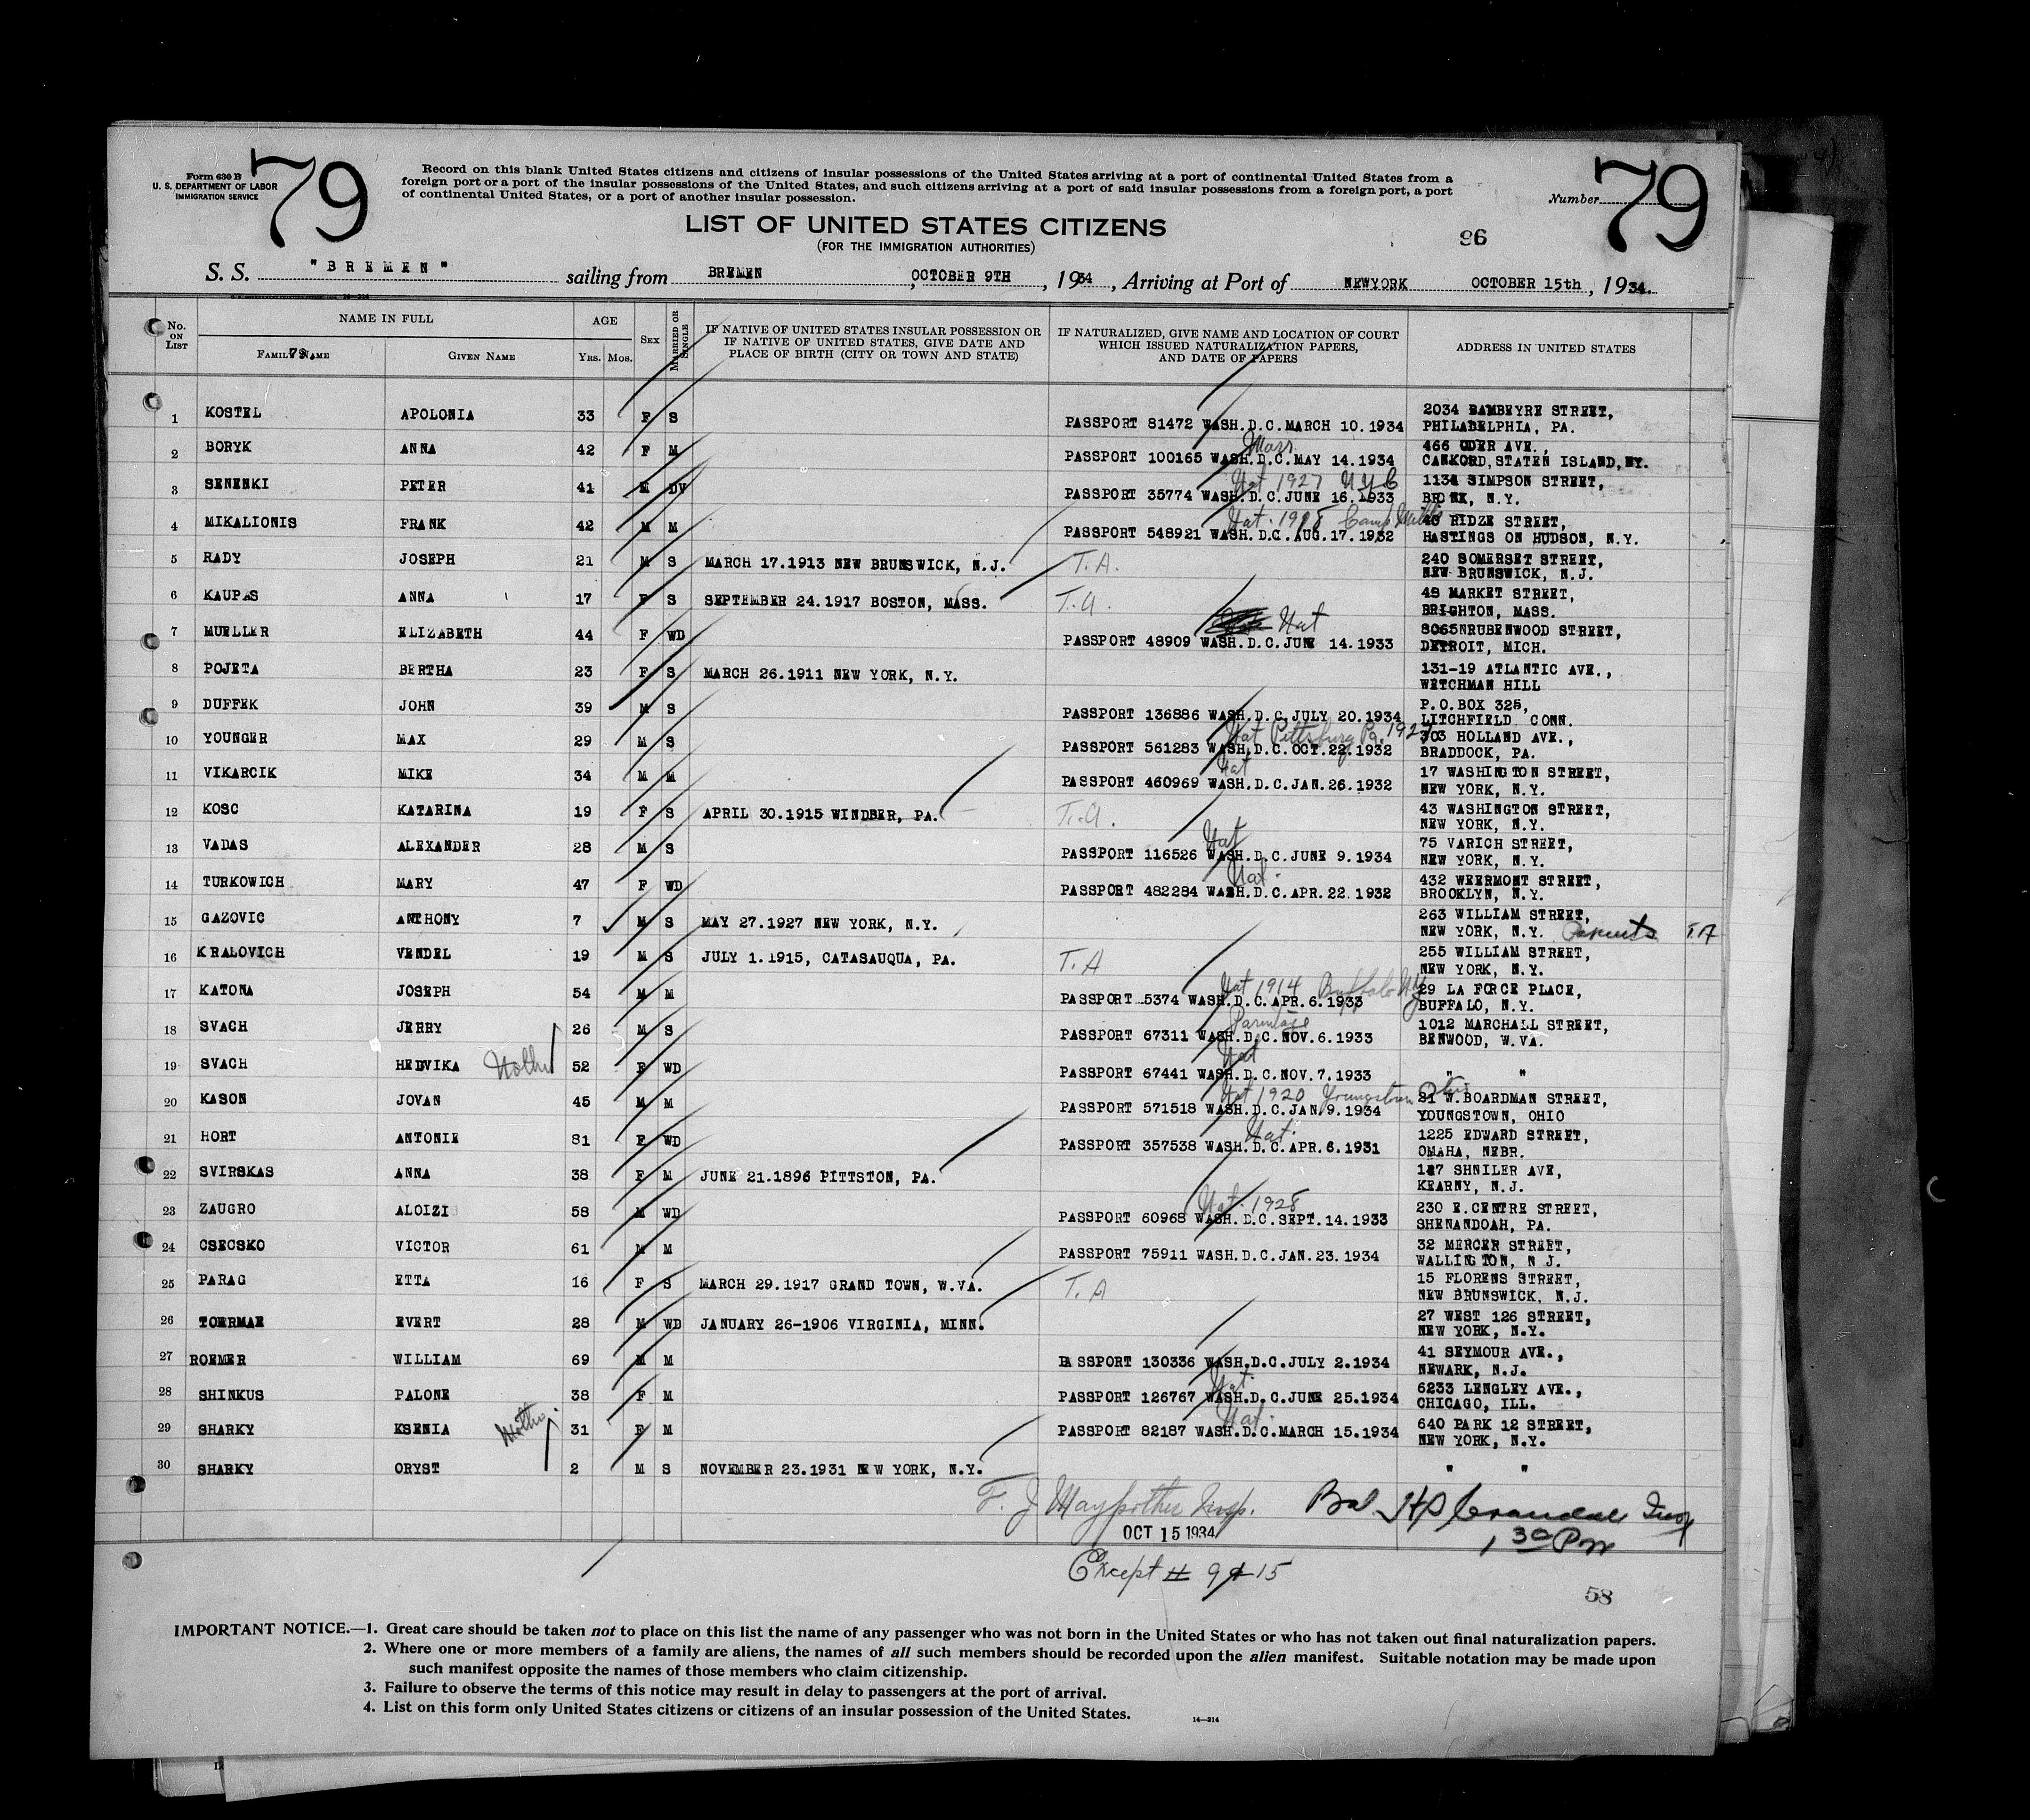 79
79
Form 630 B
U. S. DEPARTMENT OF LABOR
IMMIGRATION SERVICE
Record on this blank United States citizens and citizens of insular possessions of the United States arriving at a port of continental United States from a
foreign port or a port of the insular possessions of the United States, and such citizens arriving at a port of said insular possessions from a foreign port, a port
of continental United States, or a port of another insular possession.
Number
LIST OF UNITED STATES CITIZENS
(FOR THE IMMIGRATION AUTHORITIES)
96
S. S. "BREMEN" sailing from BREMEN, OCTOBER 9TH, 1934, Arriving at Port of NEWYORK OCTOBER 15th, 1934.
No. ON LIST
NAME IN FULL
FAMILY NAME
79
GIVEN NAME
AGE
YRS. MOS.
SEX
MARRIED OR SINGLE
IF NATIVE OF UNITED STATES INSULAR POSSESSION OR
IF NATIVE OF UNITED STATES, GIVE DATE AND
PLACE OF BIRTH (CITY OR TOWN AND STATE)
IF NATURALIZED, GIVE NAME AND LOCATION OF COURT
WHICH ISSUED NATURALIZATION PAPERS,
AND DATE OF PAPERS
ADDRESS IN UNITED STATES
1 KOSTEL APOLONIA 33 F S PASSPORT 81472 WASH.D.C.MARCH 10.1934 2034 BAMBEYRE STREET,
PHILADELPHIA, PA.
2 BORYK ANNA 42 F M PASSPORT 100165 WASH.D.C.MAY 14.1934 466 ODER AVE.,
Marr.
CANKORD,STATEN ISLAND,NY.
3 SENENKI PETER 41 M DV PASSPORT 35774 WASH.D.C.JUNE 16.1933 1134 SIMPSON STREET,
Nat 1927 NYC
BRONX, N.Y.
4 MIKALIONIS FRANK 42 M M PASSPORT 548921 WASH.D.C.AUG.17.1932 40 RIDZE STREET,
Nat. 1918 Camp
HASTINGS ON HUDSON, N.Y.
5 RADY JOSEPH 21 M S MARCH 17.1913 NEW BRUNSWICK, N.J. T.A. 240 SOMERSET STREET,
NEW BRUNSWICK, N.J.
6 KAUPAS ANNA 17 F S SEPTEMBER 24.1917 BOSTON, MASS. T.A. 48 MARKET STREET,
BRIGHTON, MASS.
7 MUELLER ELIZABETH 44 F WD PASSPORT 48909 WASH.D.C.JUNE 14.1933 8065NRUBENWOOD STREET,
Nat
DETROIT, MICH.
8 POJETA BERTHA 23 F S MARCH 26.1911 NEW YORK, N.Y. 131-19 ATLANTIC AVE.,
WETCHMAN HILL
9 DUFFEK JOHN 39 M S PASSPORT 136886 WASH.D.C.JULY 20.1934 P.O.BOX 325,
LITCHFIELD CONN.
10 YOUNGER MAX 29 M S PASSPORT 561283 WASH.D.C.OCT.22.1932 303 HOLLAND AVE.,
Nat Pittsburg Pa. 1927
BRADDOCK, PA.
11 VIKARCIK MIKE 34 M M PASSPORT 460969 WASH.D.C.JAN.26.1932 17 WASHINGTON STREET,
Nat
NEW YORK, N.Y.
12 KOSC KATARINA 19 F S APRIL 30.1915 WINDBER, PA. T.A. 43 WASHINGTON STREET,
NEW YORK, N.Y.
13 VADAS ALEXANDER 28 M S PASSPORT 116526 WASH.D.C.JUNE 9.1934 75 VARICH STREET,
Nat
NEW YORK, N.Y.
14 TURKOWICH MARY 47 F WD PASSPORT 482284 WASH.D.C.APR.22.1932 432 WEERMONT STREET,
Nat.
BROOKLYN, N.Y.
15 GAZOVIC ANTHONY 7 M S MAY 27.1927 NEW YORK, N.Y. 263 WILLIAM STREET,
NEW YORK, N.Y. Parents T.A
16 KRALOVICH VENDEL 19 M S JULY 1.1915, CATASAUQUA, PA. T.A 255 WILLIAM STREET,
NEW YORK, N.Y.
17 KATONA JOSEPH 54 M M PASSPORT 5374 WASH.D.C.APR.6.1933 29 LA FORCE PLACE,
Nat 1914 Buffalo NY
BUFFALO, N.Y.
18 SVACH JERRY 26 M S PASSPORT 67311 WASH.D.C.NOV.6.1933 1012 MARCHALL STREET,
Parentage
BENWOOD, W.VA.
19 SVACH HEDVIKA Mother 52 F WD PASSPORT 67441 WASH.D.C.NOV.7.1933 " "
Nat
20 KASON JOVAN 45 M M PASSPORT 571518 WASH.D.C.JAN.9.1934 21 W.BOARDMAN STREET,
Nat 1920 Youngstown Ohio
YOUNGSTOWN, OHIO
21 HORT ANTONIE 81 F WD PASSPORT 357538 WASH.D.C.APR.6.1931 1225 EDWARD STREET,
Nat.
OMAHA, NEBR.
22 SVIRSKAS ANNA 38 F M JUNE 21.1896 PITTSTON, PA. 127 SHNILER AVE,
KEARNY, N.J.
23 ZAUGRO ALOIZI 58 M WD PASSPORT 60968 WASH.D.C.SEPT.14.1933 230 E.CENTRE STREET,
Nat. 1928
SHENANDOAH, PA.
24 CSECSKO VICTOR 61 M M PASSPORT 75911 WASH.D.C.JAN.23.1934 32 MERCER STREET,
WALLINGTON, N J.
25 PARAG ETTA 16 F S MARCH 29.1917 GRAND TOWN, W.VA. T.A 15 FLORENS STREET,
NEW BRUNSWICK, N.J.
26 TOERMAE EVERT 28 M WD JANUARY 26-1906 VIRGINIA, MINN. 27 WEST 126 STREET,
NEW YORK, N.Y.
27 ROEMER WILLIAM 69 M M PASSPORT 130336 WASH.D.C.JULY 2.1934 41 SEYMOUR AVE.,
NEWARK, N.J.
28 SHINKUS PALONE 38 F M PASSPORT 126767 WASH.D.C.JUNE 25.1934 6233 LENGLEY AVE.,
Nat.
CHICAGO, ILL.
29 SHARKY KSENIA Mother 31 F M PASSPORT 82187 WASH.D.C.MARCH 15.1934 640 PARK 12 STREET,
Nat.
NEW YORK, N.Y.
30 SHARKY ORYST 2 M S NOVEMBER 23.1931 NEW YORK, N.Y. " "
F. J Maypother Insp. Bal HP Crandall Insp
OCT 15 1934
1 30 PM
Except # 9 & 15
58
IMPORTANT NOTICE.—1. Great care should be taken not to place on this list the name of any passenger who was not born in the United States or who has not taken out final naturalization papers.
2. Where one or more members of a family are aliens, the names of all such members should be recorded upon the alien manifest. Suitable notation may be made upon
such manifest opposite the names of those members who claim citizenship.
3. Failure to observe the terms of this notice may result in delay to passengers at the port of arrival.
4. List on this form only United States citizens or citizens of an insular possession of the United States.
14—314